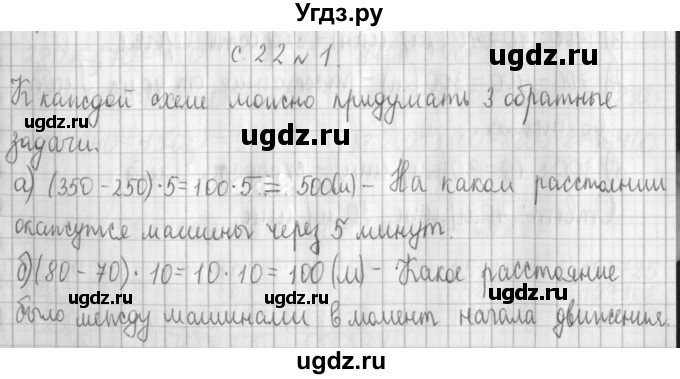 Угдз.ру
с. 22 № 1.
ugdz.ru
ugdz.ru
К каждой схеме можно придумать 3 обратные
ugdz.ru
ugdz.ru
ugdz.ru
задачи.
ugdz.ru
а) (350 - 250) · 5 = 100 · 5 = 500 (м) - На каком расстоянии
окажутся машины через 5 минут.
ugdz.ru
б) (80 - 70) · 10 = 10 · 10 = 100 (м) - Какое расстояние
ugdz.ru
ugdz.ru
было между машинами в момент начала движения.
ugdz.ru
ugdz.ru